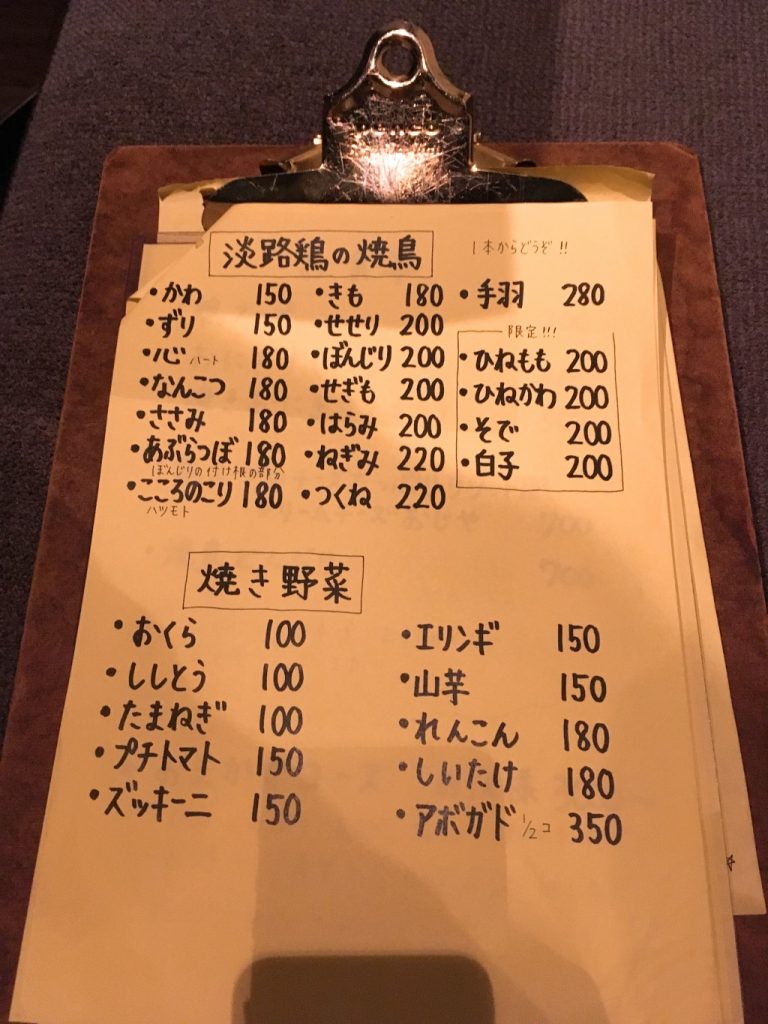 淡路鶏の焼鳥
1本からどうぞ!!
・かわ 150
・ずり 150
・心 ハート 180
・なんこつ 180
・ささみ 180
・あぶらつぼ 180
ぼんじりの付け根の部分
・こころのこり 180
ハツモト
・きも 180
・せせり 200
・ぼんじり 200
・せぎも 200
・はらみ 200
・ねぎみ 220
・つくね 220
・手羽 280
限定!!!
・ひねもも 200
・ひねかわ 200
・そで 200
・白子 200
焼き野菜
・おくら 100
・ししとう 100
・たまねぎ 100
・プチトマト 150
・ズッキーニ 150
・エリンギ 150
・山芋 150
・れんこん 180
・しいたけ 180
・アボガド 1/2コ 350